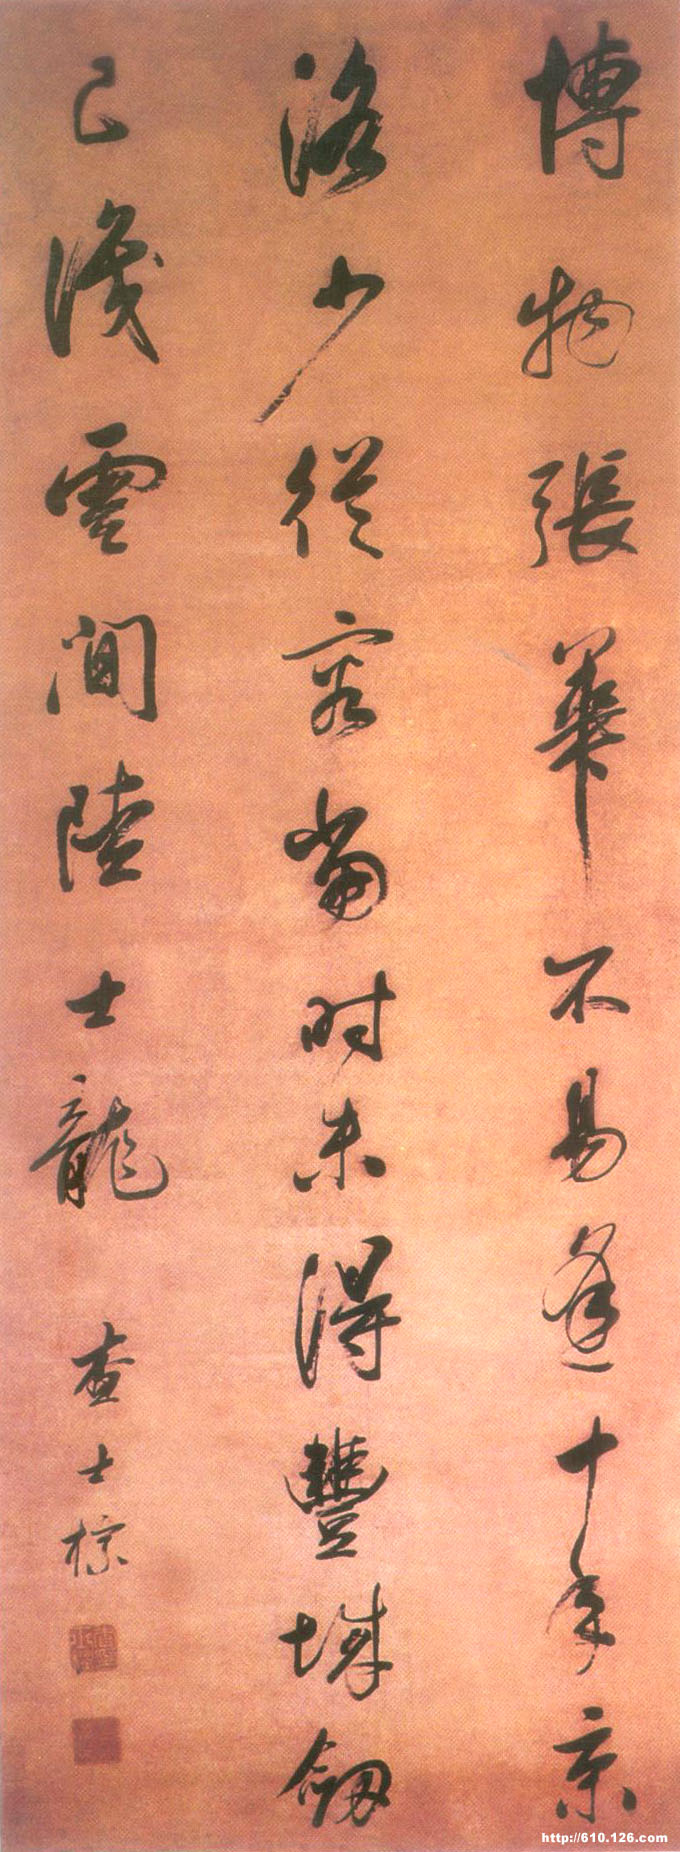 博物張華不易逢十年京
洛少從容當時未得豐城劒
已識雲間陸士龍
查士標
http://610.126.com